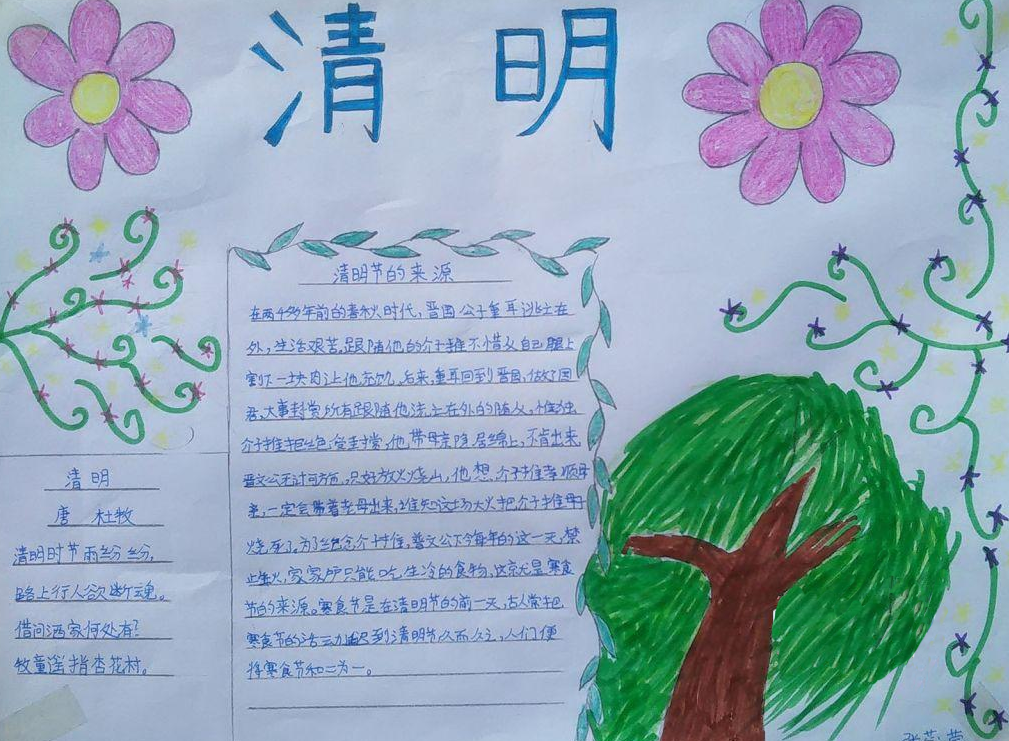 清明
清明节的来源
在两千多年前的春秋时代，晋国公子重耳逃亡在
外，生活艰苦，跟随他的介子推不惜从自己腿上
割下一块肉让他充饥。后来，重耳回到晋国，做了国
君，大事封赏所有跟随他流亡在外的随从，惟独
介子推拒绝接受封赏，他带母亲隐居绵上，不肯出来，
晋文公无计可施，只好放火烧山，他想，介子推孝顺母
亲，一定会带着老母出来，谁知这场大火把介子推母子
烧死了。为了纪念介子推，晋文公下令每年的这一天，禁
止生火，家家户只能吃生冷的食物，这就是寒食
节的来源。寒食节是在清明节的前一天，古人常把
寒食节的活动延到清明节，久而久之，人们便
将寒食节和二为一。
清明
唐 杜牧
清明时节雨纷纷，
路上行人欲断魂。
借问酒家何处有？
牧童遥指杏花村。